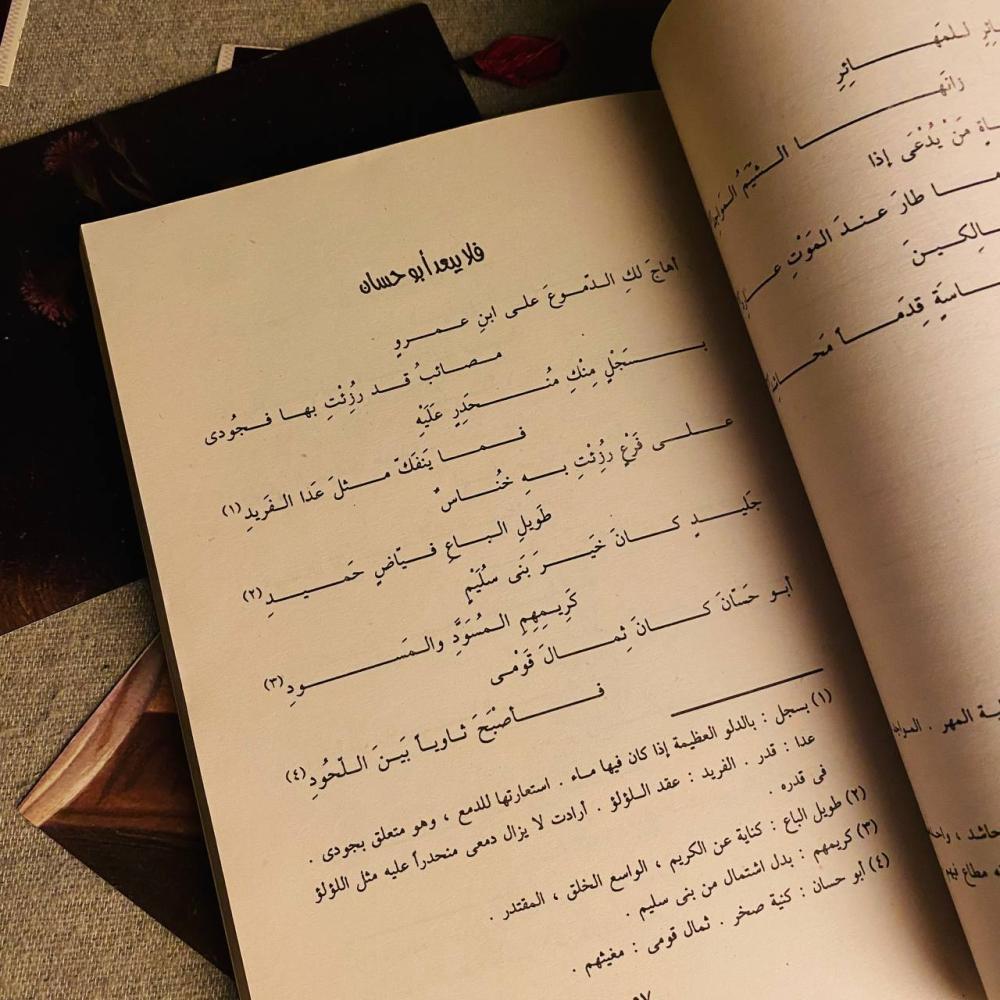 فلا يبعد أبو حسان
أهاجَ لكِ الدّموعَ على ابنِ عمروٍ
مصائبُ قد رُزِئْتِ بها فجُودى
بسَجْلٍ مِنْكِ مُنْحَدِرٍ عَلَيْهِ
فما يَنفَكّ مثلَ عَدَا الفَريدِ (١)
على فَرْعٍ رزِئْتِ بهِ خُناسٌ
طَويلِ الباعِ فيّاضٍ حَميدِ (٢)
جَليدٍ كانَ خَيرَ بَنى سُلَيْمٍ
كَريمِهِمِ المُسَوَّدِ والمَسودِ (٣)
أبو حَسّانَ كانَ ثِمالَ قَوْمى
فأصْبَحَ ثاوياً بَينَ اللّحُودِ (٤)
(١) بسجل : بالدلو العظيمة إذا كان فيها ماء . استعارتها للدمع ، وهو متعلق بجودى .
عدا : قدر . الفريد : عقد اللؤلؤ . أرادت لا يزال دمعى منحدراً عليه مثل اللؤلؤ
فى قدره .
(٢) طويل الباع : كناية عن الكريم ، الواسع الخلق ، المقتدر .
(٣) كريمهم : بدل اشتمال من بنى سليم .
(٤) أبو حسان : كنية صخر . ثمال قومى : مغيثهم .
للمهائِرِ
زانَها الشّيَمُ
مَنْ يُدْعَى إذا
ما طارَ عندَ المَوْتِ
قِدَماً
المهر .
حاشد ،
مطاع